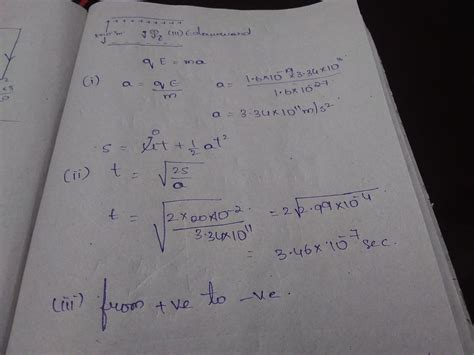 + + + + + + +
(iii)
qE = ma
(i) a = qE/m a = 1.6×10^-19 × 3.34×10^4/1.6×10^-27
a = 3.34×10^11 m/s²
s = ut + 1/2 at²
0
(ii) t = √(2s/a)
t = √(2×20×10^-2/3.34×10^11) = 2√(2.99×10^-4)
= 3.46×10^-7 sec.
(iii) from +ve to -ve.